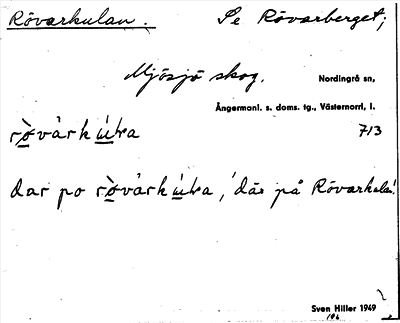 Rövarkulan. Se Rövarberget;
Mjösjö skog. Nordingrå sn,
Ångermanl. s. doms. tg., Västernorrl, l.
713
dar po
'där på Rövarkulan'.
Sven Hiller 1949